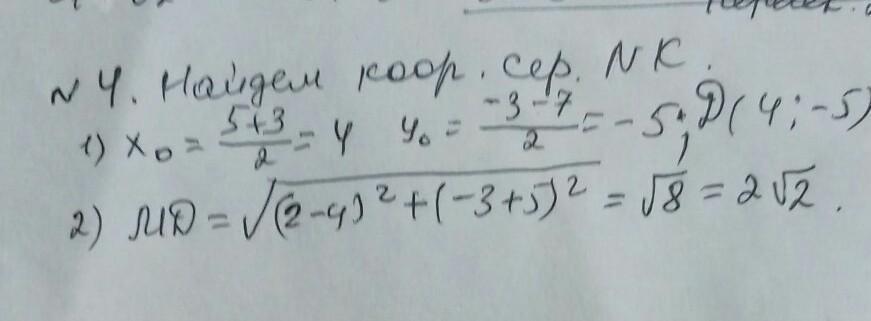 N 4. Найдем коор. сер. NK.
1) x₀ = \frac{5+3}{2} = 4 y₀ = \frac{-3-7}{2} = -5; D(4; -5)
2) MD = \sqrt{(2-4)^2 + (-3+5)^2} = \sqrt{8} = 2\sqrt{2}.